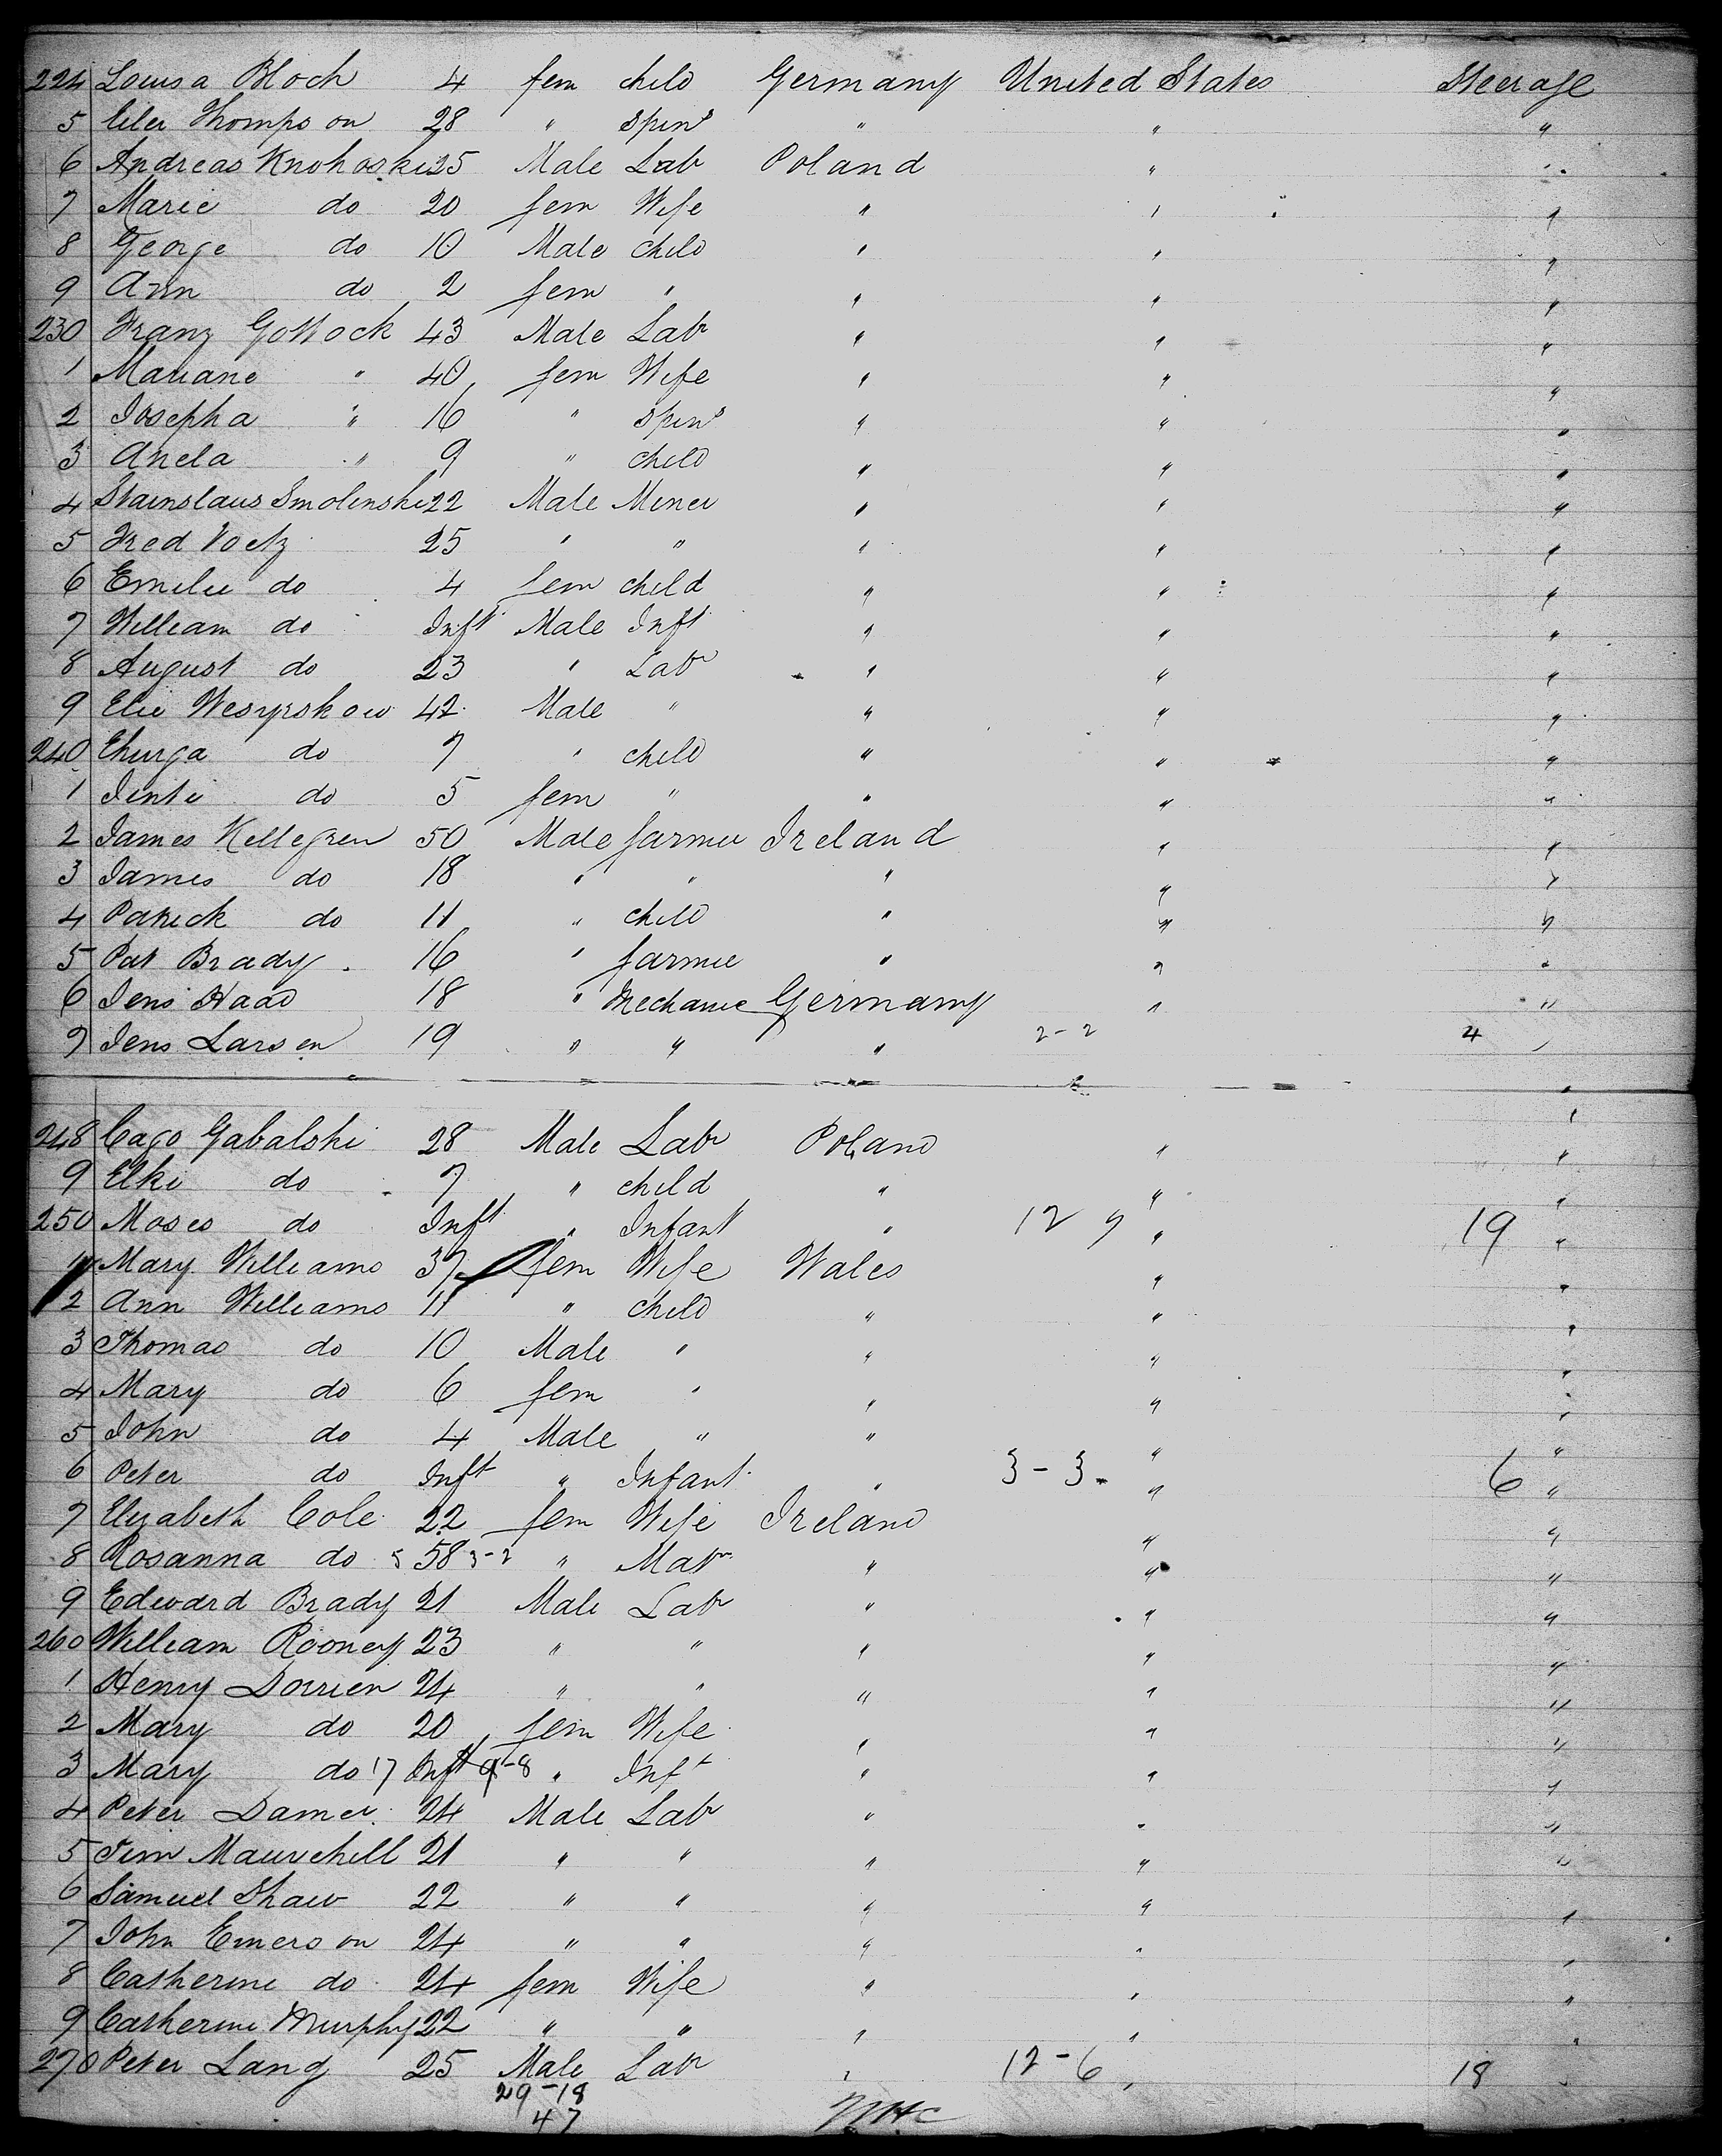 224 Louisa Bloch 4 fem child Germany United States Steerage
5 Thompson 28 " Spins " " "
6 Andreas Knohoski 25 Male Lab Poland " "
7 Marie do 20 fem Wife " " "
8 George do 10 Male child " " "
9 Ann do 2 fem " " " "
230 Franz Gottock 43 Male Lab " " "
1 Mariane " 40 fem Wife " " "
2 Josepha " 16 " Spins " " "
3 Anela " 9 " child " " "
4 Stainslaus Smolenski 22 Male Miner " " "
5 Fred Voetz 25 " " " " "
6 Emelie do 4 fem child " " "
7 William do Inft Male Inft " " "
8 August do 23 " Lab " " "
9 Elie Wesyrskow 42 Male " " " "
240 Churga do 7 " child " " "
1 Jenti do 5 fem " " " "
2 James Kellegren 50 Male farmer Ireland " "
3 James do 18 " " " " "
4 Patrick do 11 " child " " "
5 Pat Brady 16 " farmer " " "
6 Jens Haad 18 " Mechanic Germany " "
7 Jens Larsen 19 " " " 2-2 4 "
248 Cago Gabalski 28 Male Lab Poland " "
9 Elki do 7 " child " " "
250 Moses do Inft " Infant " 12 7 " 19 "
1 Mary Williams 37 fem Wife Wales " "
2 Ann Williams 11 " child " " "
3 Thomas do 10 Male " " " "
4 Mary do 6 fem " " " "
5 John do 4 Male " " " "
6 Peter do Inft " Infant " 3-3 " 6 "
7 Elizabeth Cole 22 fem Wife Ireland " "
8 Rosanna do 5 58 3-2 " Matn " " "
9 Edward Brady 21 Male Lab " " "
260 William Rooney 23 " " " " "
1 Henry Dorrien 24 " " " " "
2 Mary do 20 fem Wife " " "
3 Mary do 17 Inft 9-8 " Inft " " "
4 Peter Damer 24 Male Lab " " "
5 Tim Maurchell 21 " " " " "
6 Samuel Shaw 22 " " " " "
7 John Emerson 24 " " " " "
8 Catherine do 24 fem Wife " " "
9 Catherine Murphy 22 " " " " "
270 Peter Lang 25 Male Lab " 12-6 " 18 "
29-18
47